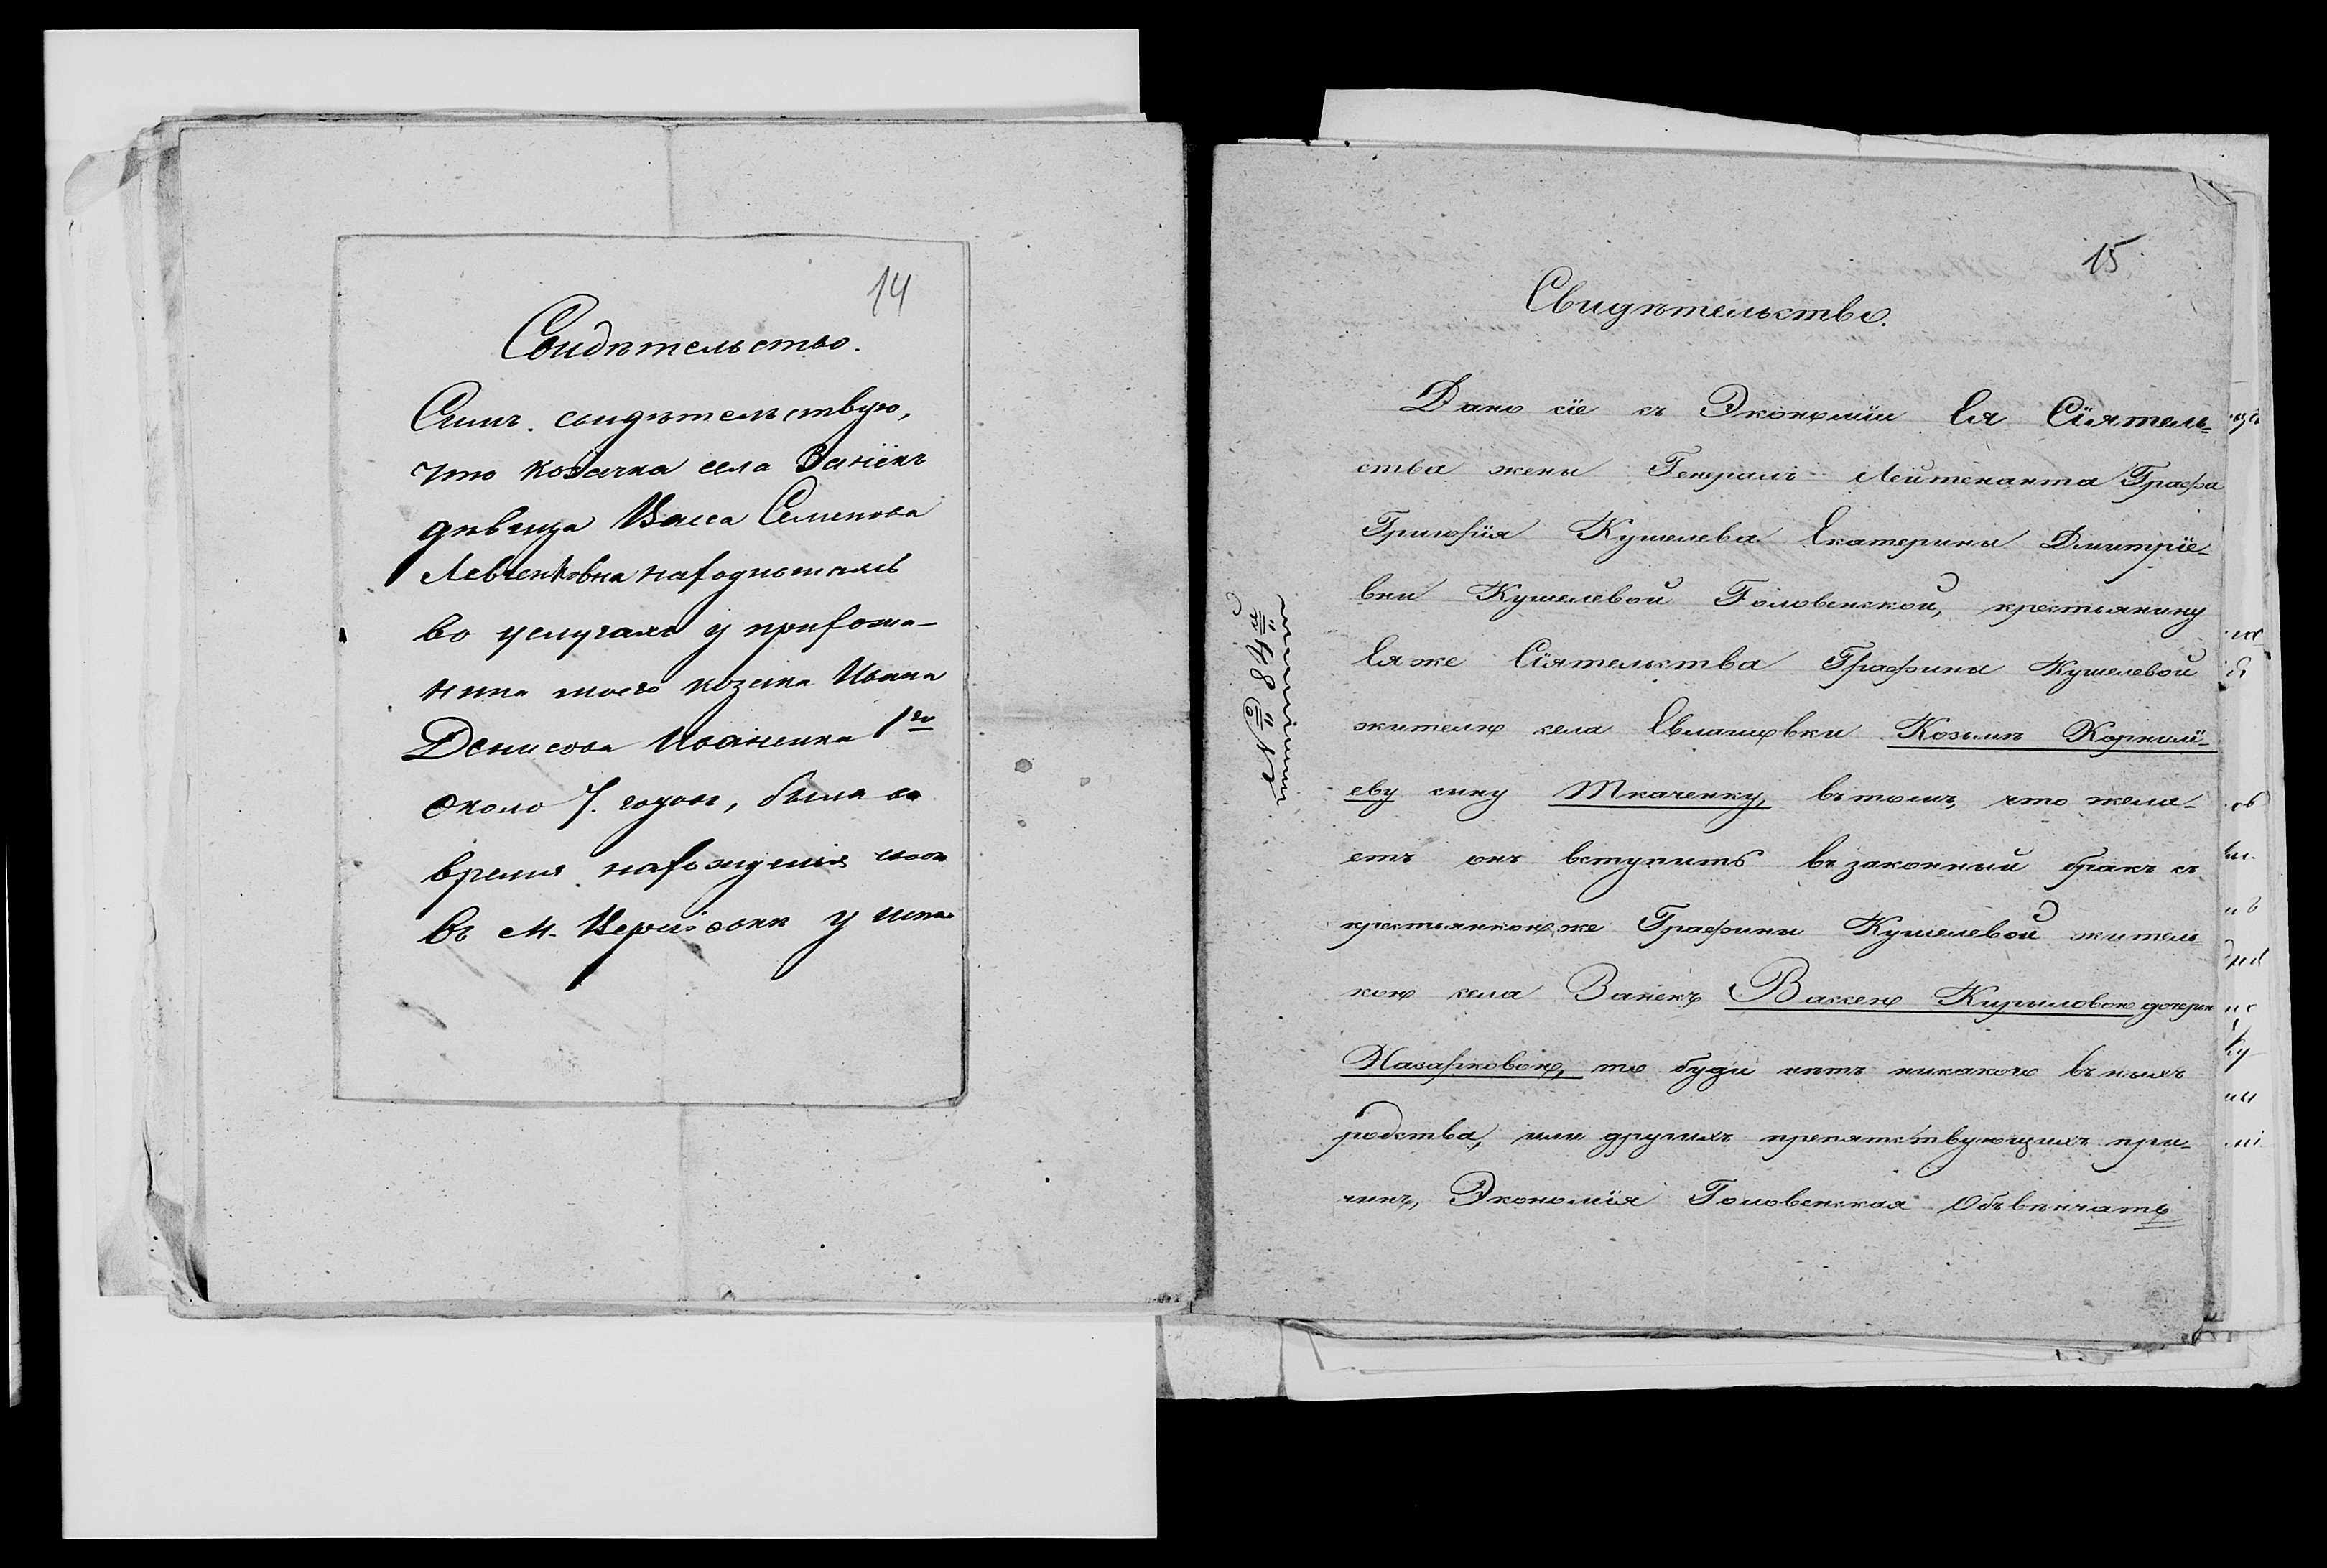 14
Свидѣтельство.
Симъ свидѣтельствую,
что козачка села Ванёкъ
дѣвица Васса Семенова
Левченковна находилась
во услугахъ у прихожа-
нина моего козака Ивана
Денисова Иваненка 1го
около 7. годовъ, была во
время нахожденія
въ М. у
15
Свидѣтельство.
Дано сіе съ Экономіи Ея Сіятель=
ства жены Генералъ Лейтенанта Графа
Григорія Кушелева Екатерины Дмитріе-
вны Кушелевой Голов­енской, крестьянину
Ея же Сіятельства Графини Кушелевой
жителю села Евлашовки Козьмѣ Корнилі-
еву сыну Ткаченку, въ томъ, что жела-
етъ онъ вступить въ законный бракъ съ
крестьянкою же Графини Кушелевой житель=
кою села Ванекъ Вассею Кириловою дочерью
Назарковою, то буди нѣтъ никакого въ ныхъ
родства, или другихъ препятствующихъ при-
чинъ, Экономія Головенская Объвѣнчать